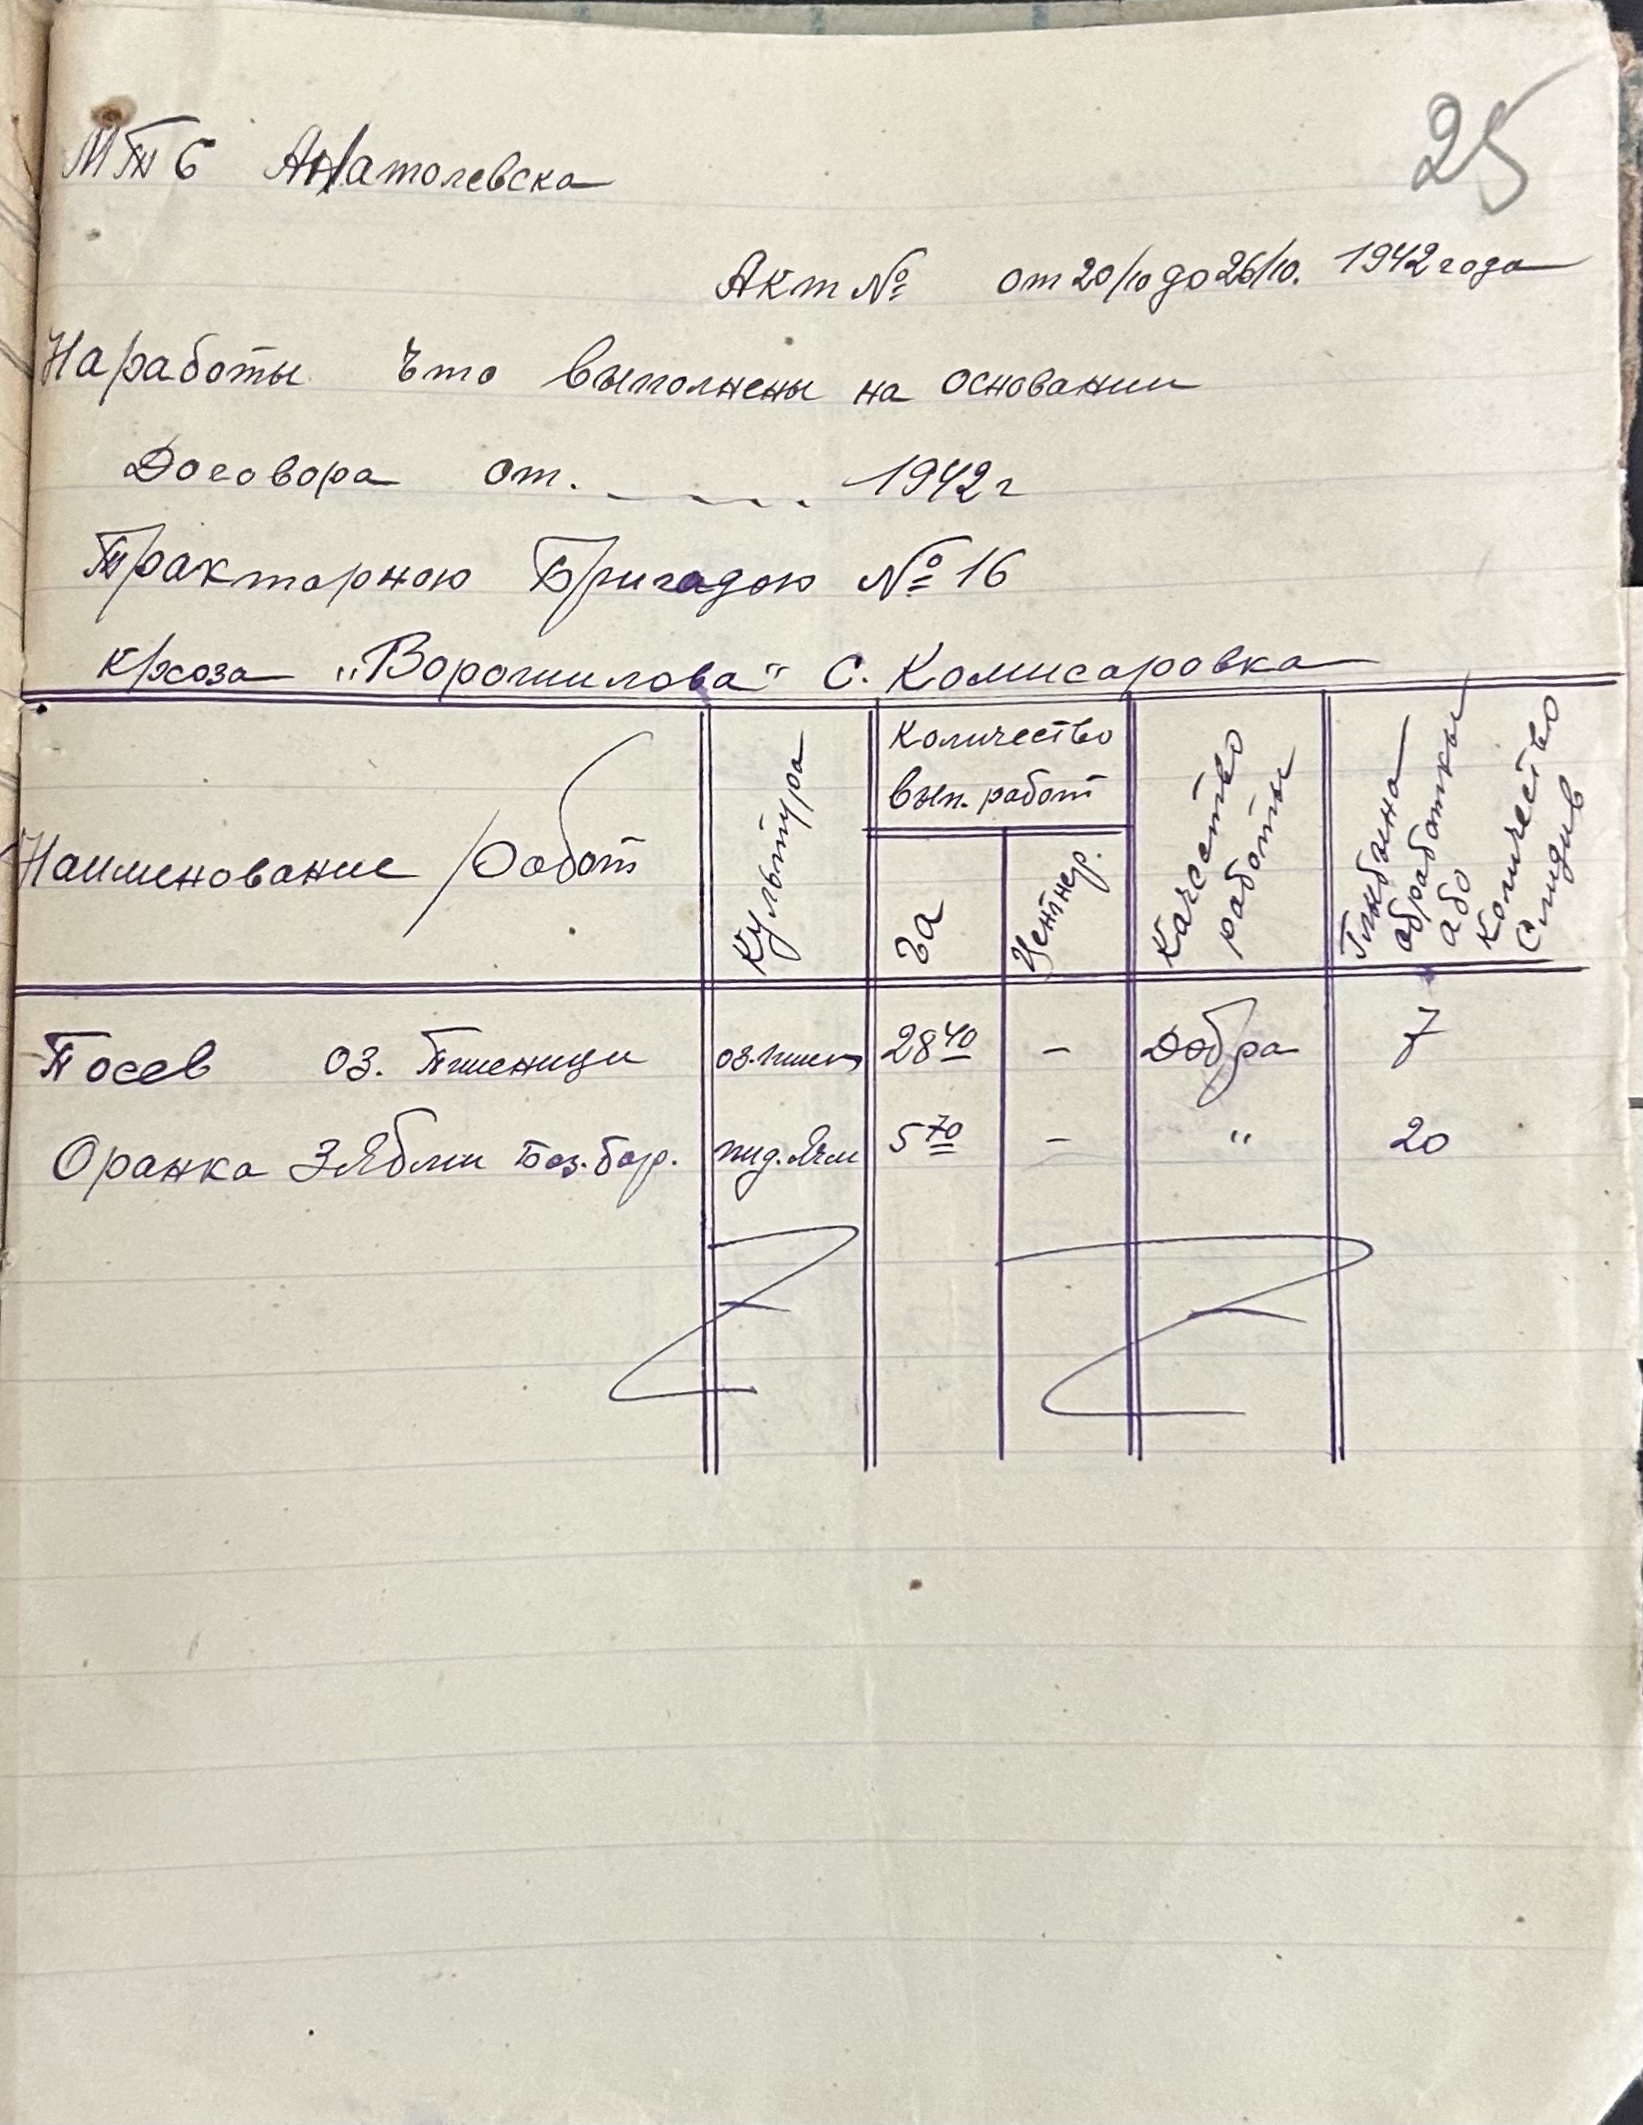 25
МТС Анатолевска
Акт № от 20/10 до 26/10. 1942 года
На работы что выполнены на основании
Договора от. _ _ . . . 1942 г
Тракторною Бригадою № 16
К/хоза „Ворошилова" С. Комисаровка
Наименование Работ
Культура
Количество
вып. работ
га
Центнер.
Качество
работы
Глибина
обработки
або
Количество
Слидив
Посев оз. Пшеници оз. пшен 28 40 – Добра 7
Оранка Зябли без. бор. пид. Ячм 5 70 – " 20